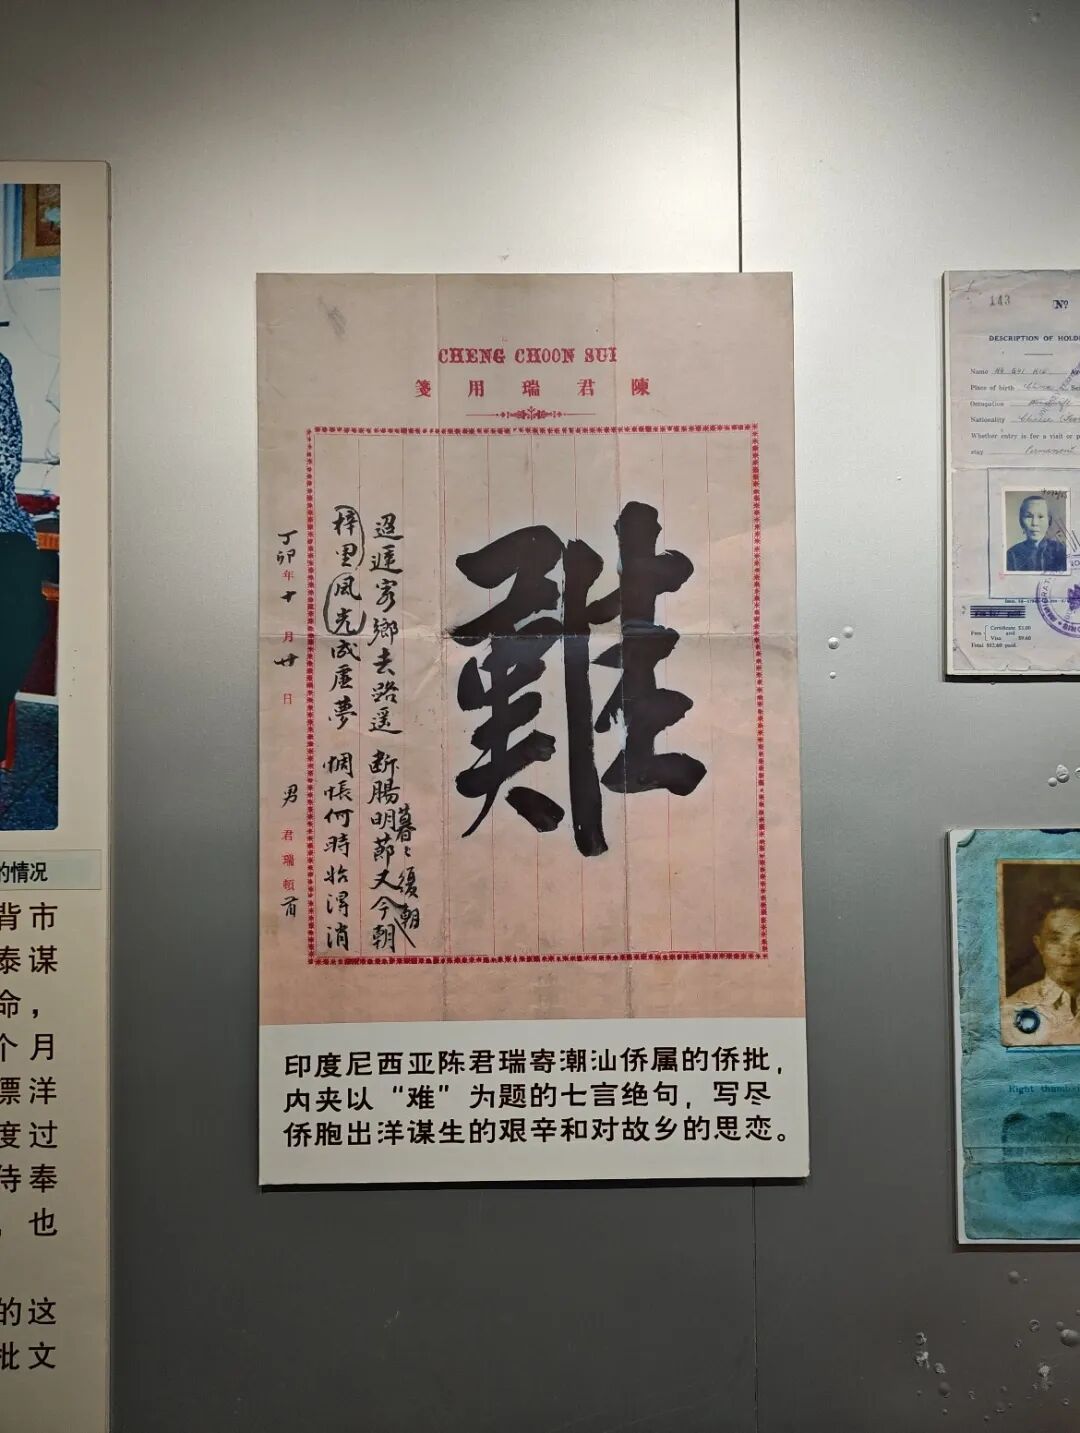 的情况
背市
泰谋
命，
个月
漂洋
度过
侍奉
，也
的这
批文
CHENG CHOON SUI
箋用瑞君陳
難
迢遞客鄉去路遥
断腸明節又今朝
暮々復朝
梓里風光成虛夢
惆悵何時始得消
丁卯年十月廿日
男君瑞頓首
印度尼西亚陈君瑞寄潮汕侨属的侨批，
内夹以“难”为题的七言绝句，写尽
侨胞出洋谋生的艰辛和对故乡的思恋。
143 No
DESCRIPTION OF HOLD
Name
Place of birth China Se
Occupation
Nationality Chinese
Whether entry is for a visit or p
stay Permanent
Fees { Certificate $3.00
and
Visa $9.60
Total $12.60 paid.
Right thumb